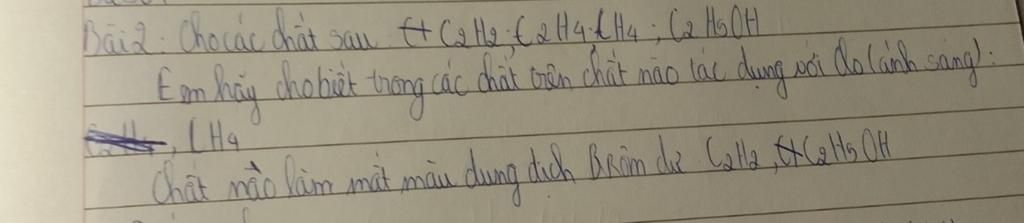 Bài 2: Cho các chất sau C2H2; C2H4; CH4; C2H5OH
Em hãy cho biết trong các chất trên chất nào tác dụng với clo (ánh sáng):
, CH4
Chất nào làm mất màu dung dịch Brôm dư C2H2, C2H5OH